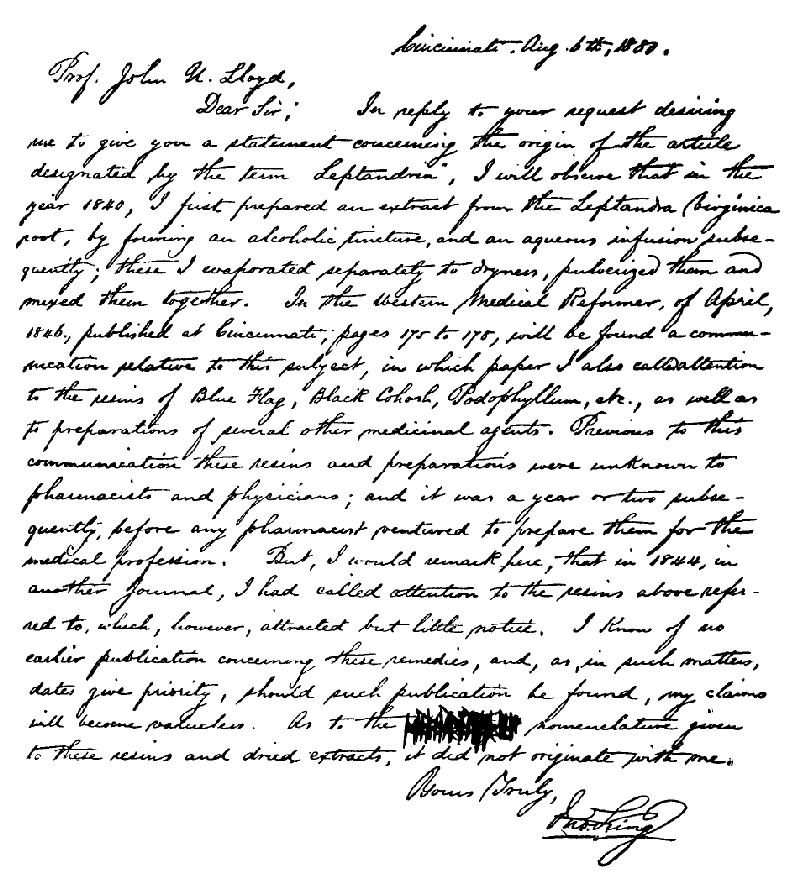 Cincinnati. Aug. 6th, 1880.
Prof. John U. Lloyd,
Dear Sir; In reply to your request desiring
me to give you a statement concerning the origin of the article
designated by the term "Leptandrin", I will observe that in the
year 1840, I first prepared an extract from the Leptandra Virginica
root, by forming an alcoholic tincture, and an aqueous infusion subse-
quently; these I evaporated separately to dryness, pulverized them and
mixed them together. In the Western Medical Reformer, of April,
1846, published at Cincinnati, pages 175 to 178, will be found a commu-
nication relative to this subject, in which paper I also called attention
to the resins of Blue Flag, Black Cohosh, Podophyllum, etc., as well as
to preparations of several other medicinal agents. Previous to this
communication these resins and preparations were unknown to
pharmacists and physicians; and it was a year or two subse-
quently, before any pharmacist ventured to prepare them for the
medical profession. But, I would remark here, that in 1844, in
another Journal, I had called attention to the resins above refer-
red to, which, however, attracted but little notice. I know of no
earlier publication concerning these remedies, and, as, in such matters,
dates give priority, should such publication be found, my claims
will become valueless. As to the nomenclature given
to these resins and dried extracts, it did not originate with me.
Yours Truly,
Jno. King